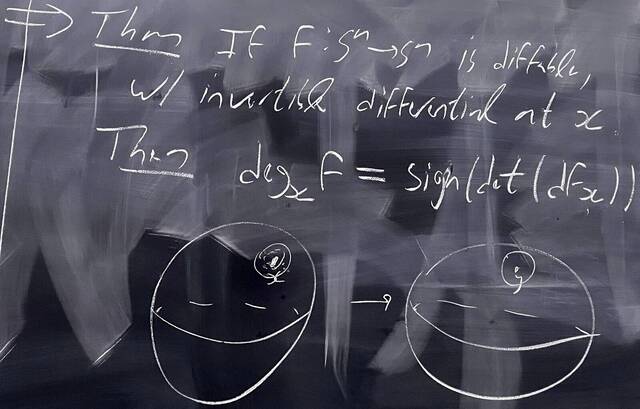 ⇒ Thm If F: Sⁿ → Sⁿ is diffable,
w/ invertible differential at x
Then deg_x F = sign(det(dF_x))
x → y